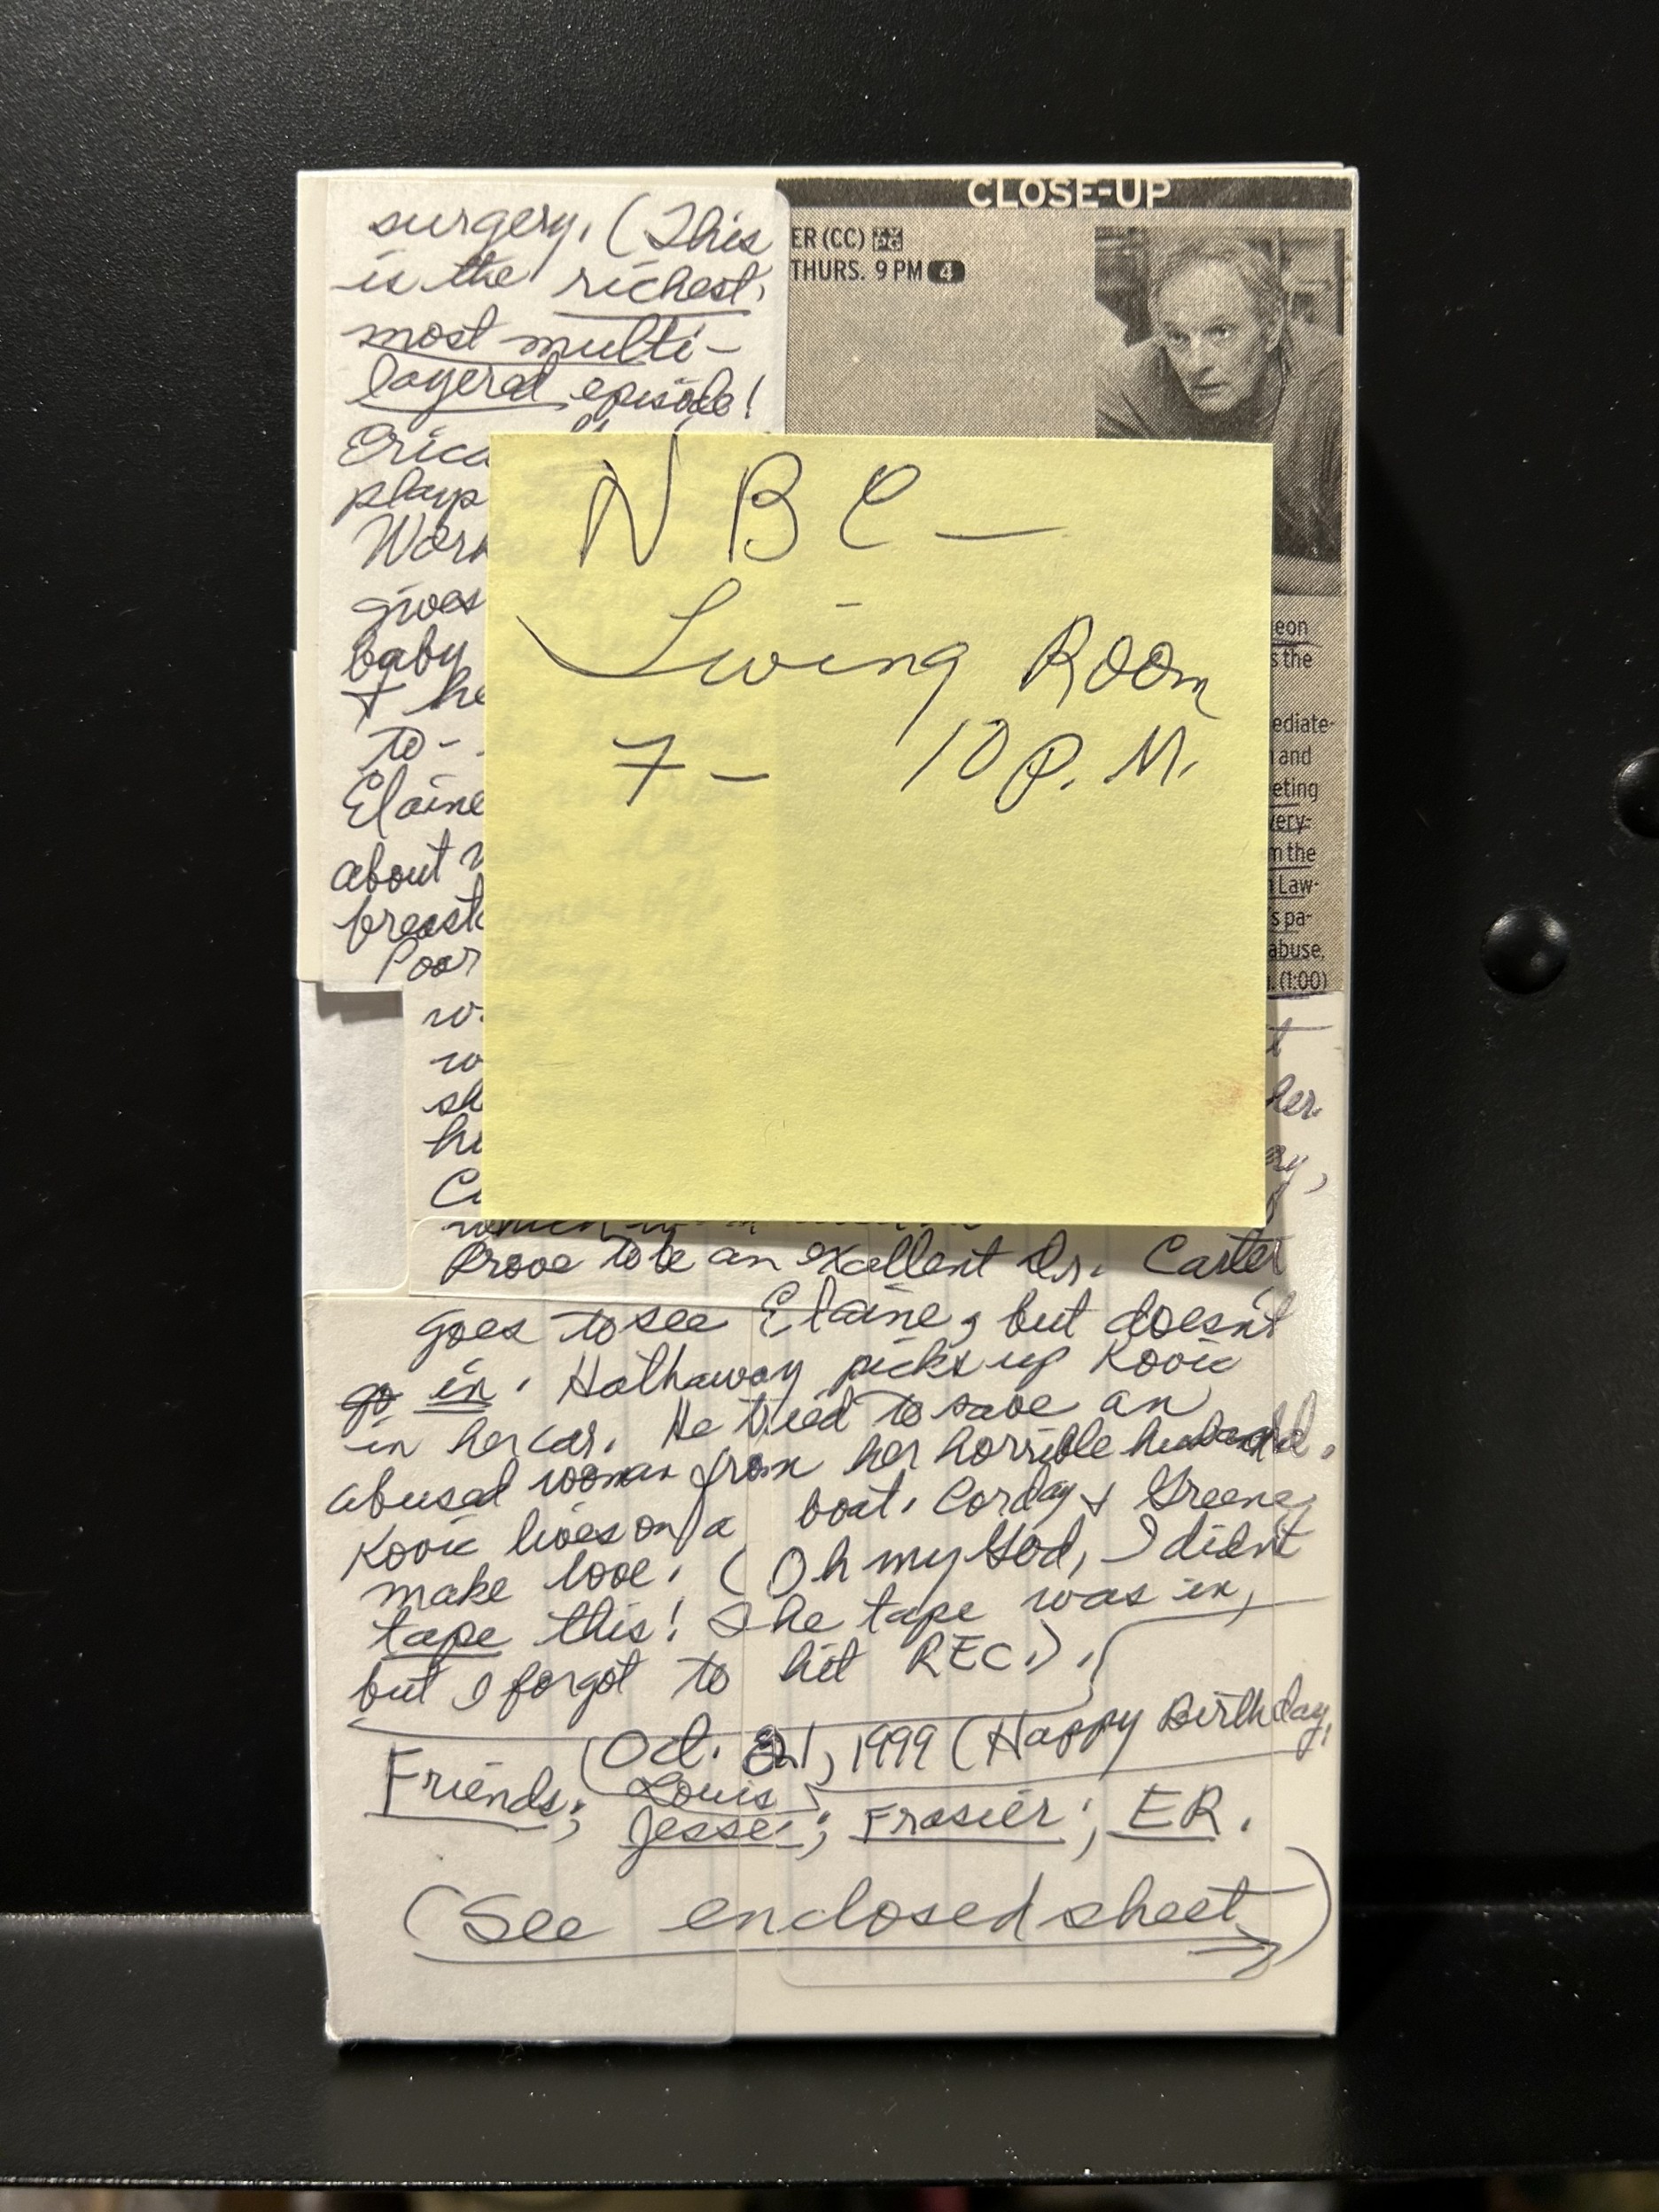 surgery. (This
is the richest,
most multi-
layered episode!
Erica
plays
gives
baby
+ he
to-
Elaine
about
breast
Poor
CLOSE-UP
ER (CC) PG
THURS. 9 PM 4
NBC —
Living Room
7 — 10 P.M.
eon
s the
ediate-
and
eting
very-
m the
Law-
's pa-
abuse.
(1:00)
her.
prove to be an excellent Dr. Carter
goes to see Elaine, but doesn't
go in. Hathaway picks up Kovic
in her car. He tried to save an
abused woman from her horrible husband.
Kovic lives on a boat. Corday + Greene
make love. (Oh my God, I didn't
tape this! The tape was in,
but I forgot to hit REC.).
Oct. 21, 1999 (Happy Birthday,
Louis
Friends; Jesse; Frasier; ER.
(See enclosed sheet)